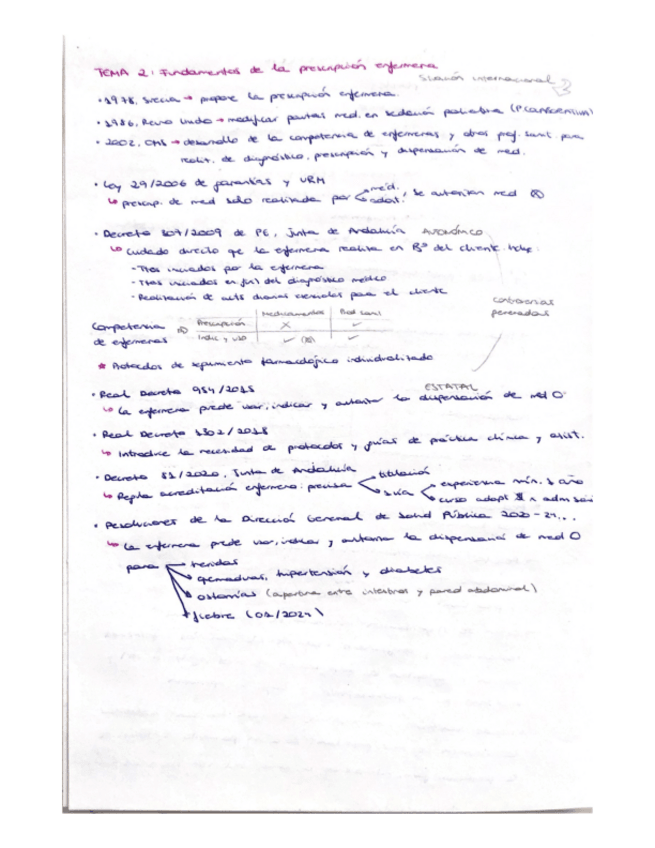 TEMA 2: Fundamentos de la prescripción enfermera
Situación internacional
• 1978, Suecia → propone la prescripción enfermera
• 1986, Reino Unido → modificar pautas med. en sedación paliativa
• 2002, OMS → desarrollo de la competencia de enfermeras y otros prof. sanit. para
realiz. de diagnóstico, prescripción y dispensación de med.
• Ley 29/2006 de garantías y URM
↳ prescrip. de med solo realizada por méd. odont. se autorizan med
• Decreto 307/2009 de PE, Junta de Andalucía AUTONÓMICO
↳ Cuidado directo que la enfermera realiza en Bº del cliente. Incluye:
- Ttos iniciados por la enfermera
- Ttos iniciados en func del diagnóstico médico
- Realización de acts diarias esenciales para el cliente
Controversias
generadas
Medicamentos | Prod sanit
Competencia Prescripción X ✓
de enfermeras Indic y uso ✓ ✓
* Protocolos de seguimiento farmacológico individualizado
• Real Decreto 954/2015 ESTATAL
↳ la enfermera puede usar, indicar y autorizar la dispensación de med
• Real Decreto 1302/2018
↳ Introduce la necesidad de protocolos y guías de práctica clínica y asist.
• Decreto 51/2020, Junta de Andalucía
↳ Regula acreditación enfermera: precisa titulación
experiencia mín. 1 año
curso adapt
• Resoluciones de la Dirección General de Salud Pública 2020-24...
↳ La enfermera puede usar, indicar y autorizar la dispensación de med
para heridas
quemaduras, hipertensión y diabetes
ostomías (apertura entre intestinos y pared abdominal)
fiebre (01/2024)